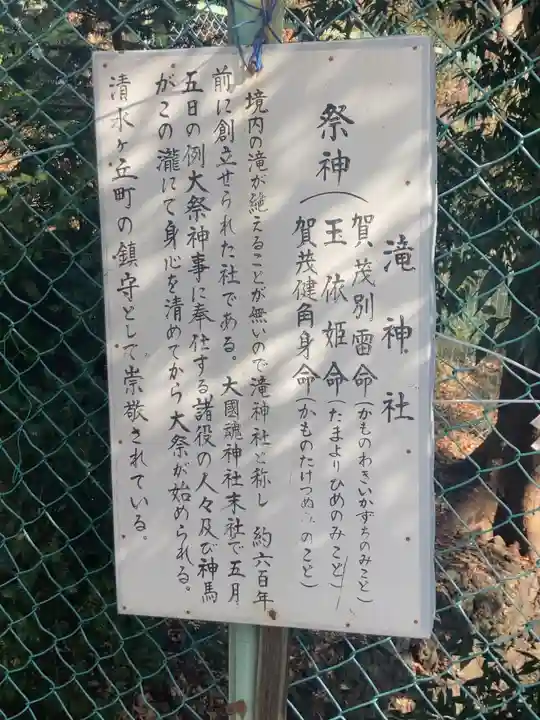 滝神社
祭神
賀茂別雷命(かものわきいかずちのみこと)
玉依姫命(たまよりひめのみこと)
賀茂健角身命(かものたけつぬのこと)
境内の滝が絶えることが無いので滝神社と称し 約六百年
前に創立せられた社である。大國魂神社末社で五月
五日の例大祭神事に奉仕する諸役の人々及び神馬
がこの瀧にて身心を清めてから大祭が始められる。
清水ヶ丘町の鎮守として崇敬されている。